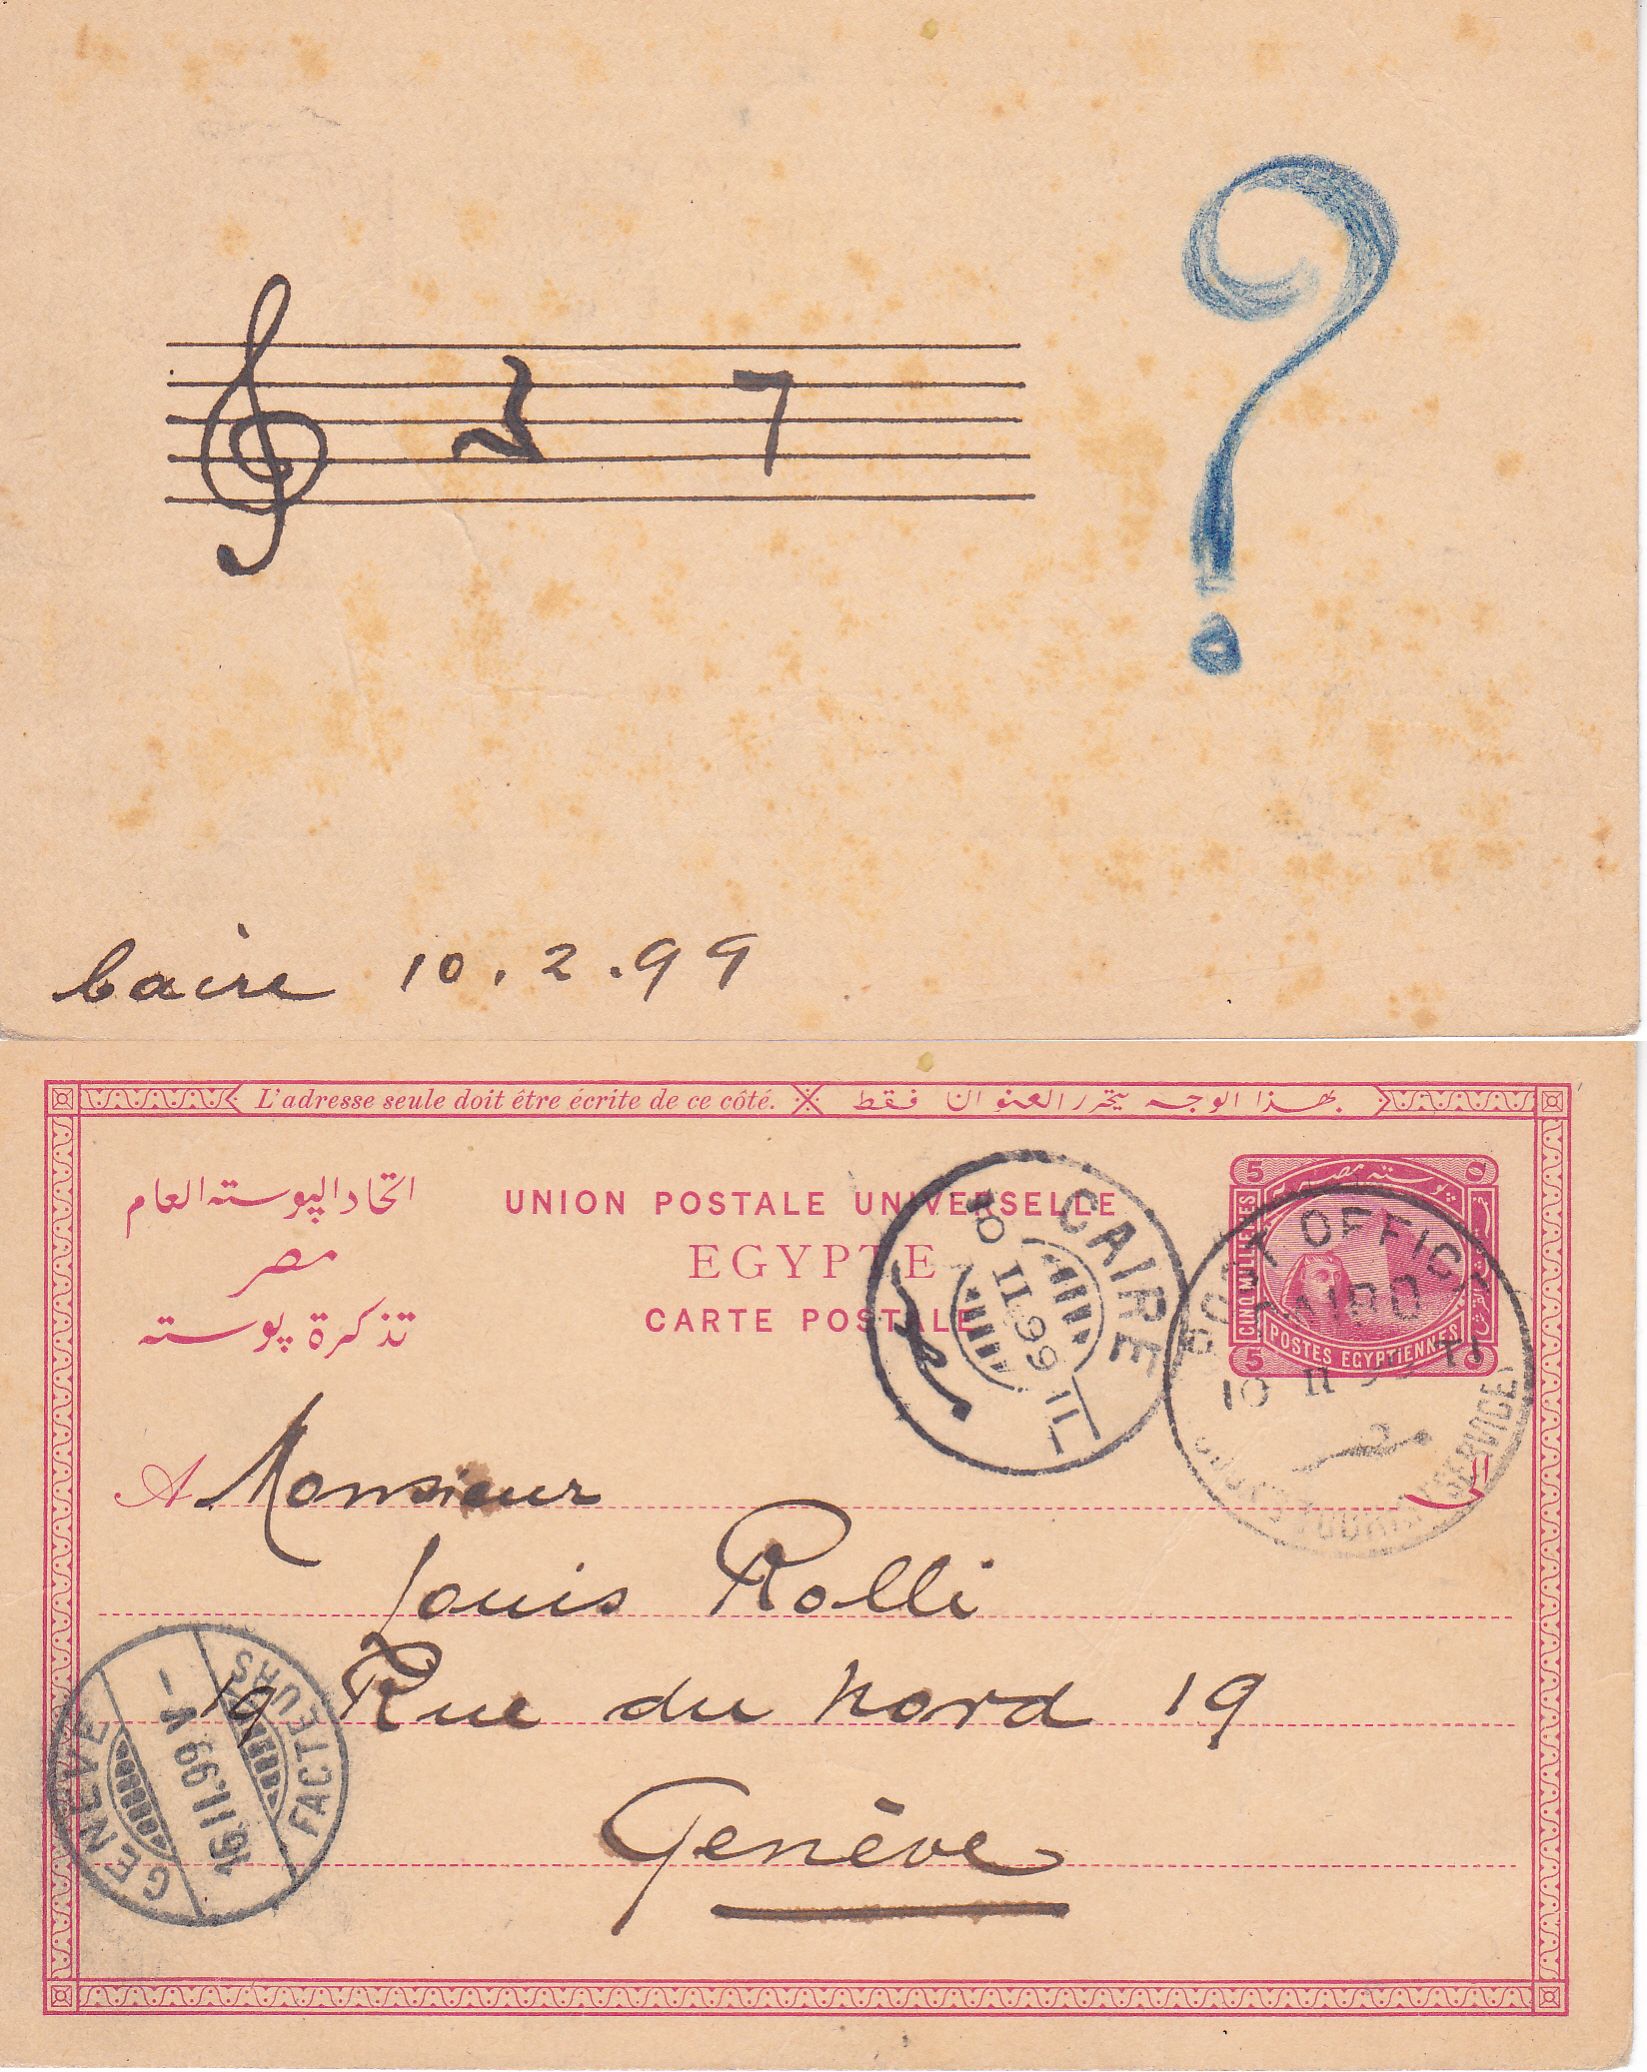 ?
Caire 10.2.99
L'adresse seule doit être écrite de ce côté. بهذا الوجه يحرر العنوان فقط
اتحاد البوسته العام
UNION POSTALE UNIVERSELLE
مصر
EGYPTE
تذكرة بوسته
CARTE POSTALE
5 5
CINQ MILLIEMES
POSTES EGYPTIENNES
5
CAIRE
10 II 99
POST OFFICE
CAIRO
10 II 99 TI
SERVICE)
A Monsieur الى
Louis Rolli
19 Rue du Nord 19
Genève
GENÈVE
16.II.99.V-
FACTEURS